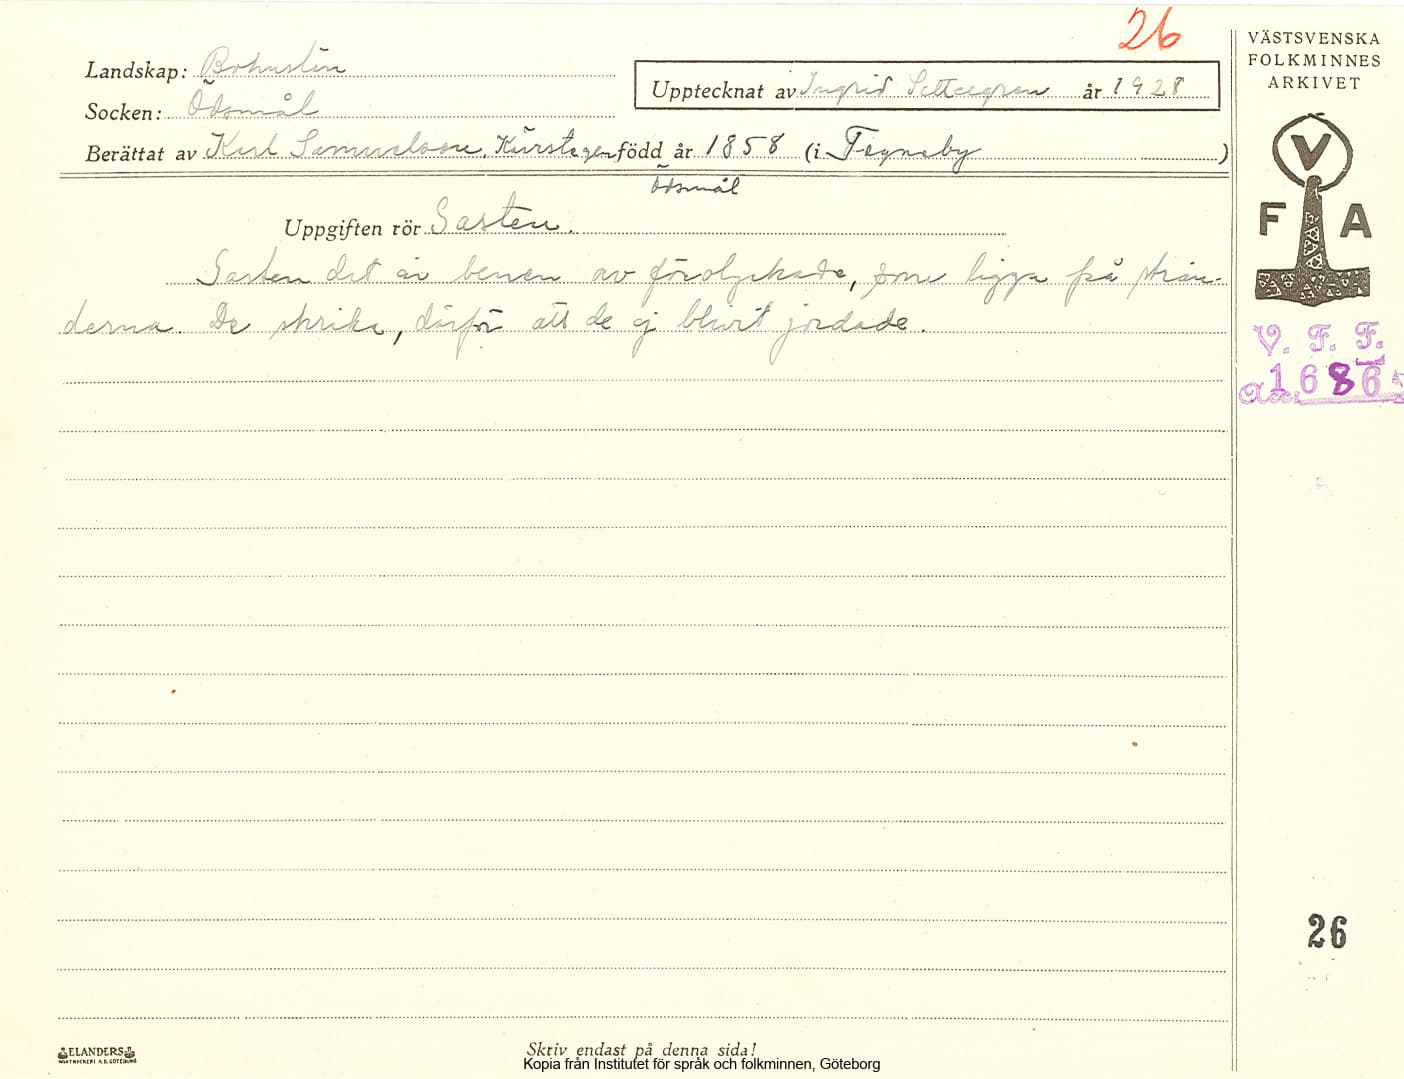 26
VÄSTSVENSKA
FOLKMINNES
ARKIVET
Landskap: Bohuslän
Upptecknat av Ingrid Settergren år 1928
Socken: Ödsmål
Berättat av Karl Samuelsson, född år 1858 (i Tegneby )
Ödsmål
V
F A
Uppgiften rör Gasten.
Gasten det är benen av förolyckade, som ligga på strän-
derna. De skrika, därför att de ej blivit jordade.
V. F. F.
Acc. 1686
26
ELANDERS
BOKTRYCKERI A.B. GÖTEBORG
Skriv endast på denna sida!
Kopia från Institutet för språk och folkminnen, Göteborg